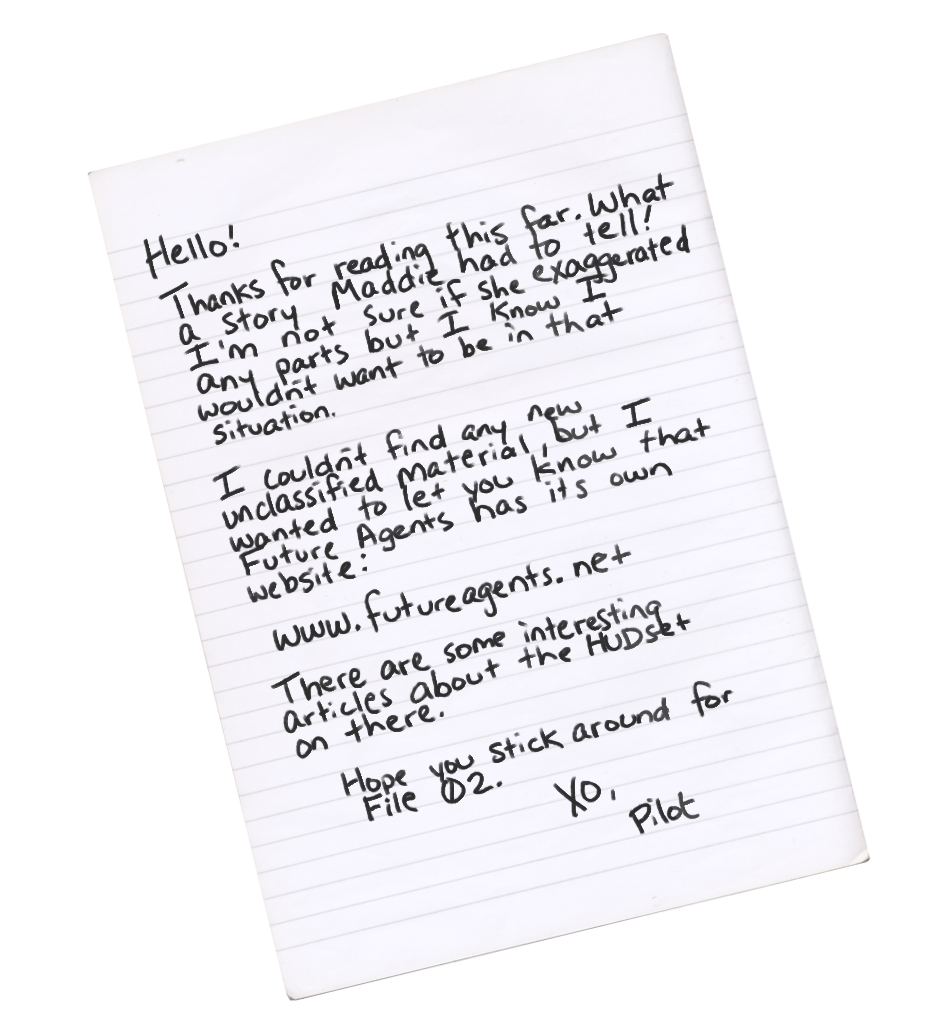 Hello!
Thanks for reading this far. What
a story Maddie had to tell!
I'm not sure if she exaggerated
any parts but I know I
wouldn't want to be in that
situation.
I couldn't find any new
unclassified material, but I
wanted to let you know that
Future Agents has its own
website:
www.futureagents.net
There are some interesting
articles about the HUDset
on there.
Hope you stick around for
File 02.
XO,
Pilot